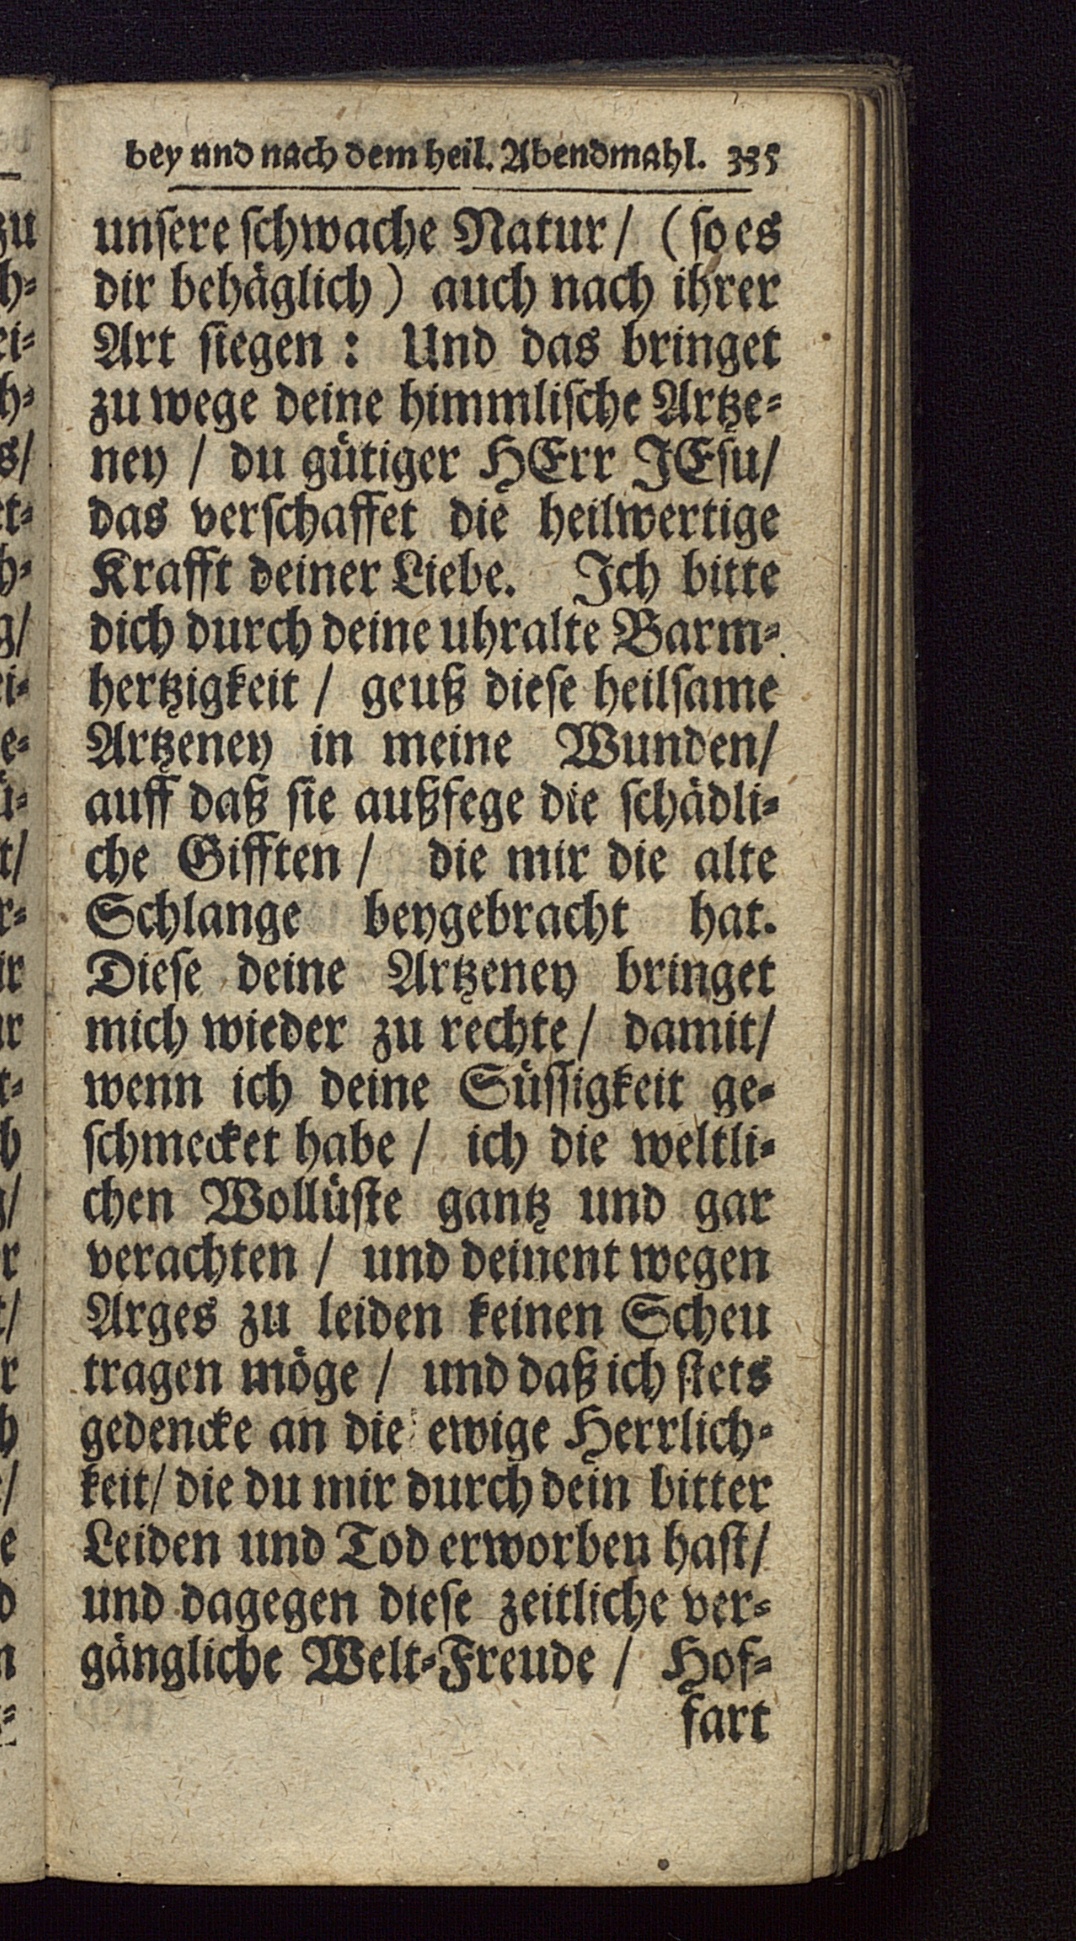 bey und nach dem heil. Abendmahl. 335
unsere schwache Natur/ (so es
dir behäglich) auch nach ihrer
Art siegen: Und das bringet
zu wege deine himmlische Artze-
ney / du gütiger HErr JEsu/
das verschaffet die heilwertige
Krafft deiner Liebe. Ich bitte
dich durch deine uhralte Barm-
hertzigkeit / geuß diese heilsame
Artzeney in meine Wunden/
auff daß sie außfege die schädli-
che Gifften / die mir die alte
Schlange beygebracht hat.
Diese deine Artzeney bringet
mich wieder zu rechte/ damit/
wenn ich deine Süssigkeit ge-
schmecket habe / ich die weltli-
chen Wollüste gantz und gar
verachten / und deinent wegen
Arges zu leiden keinen Scheu
tragen möge / und daß ich stets
gedencke an die ewige Herrlich-
keit/ die du mir durch dein bitter
Leiden und Tod erworben hast/
und dagegen diese zeitliche ver-
gängliche Welt-Freude / Hof-
fart